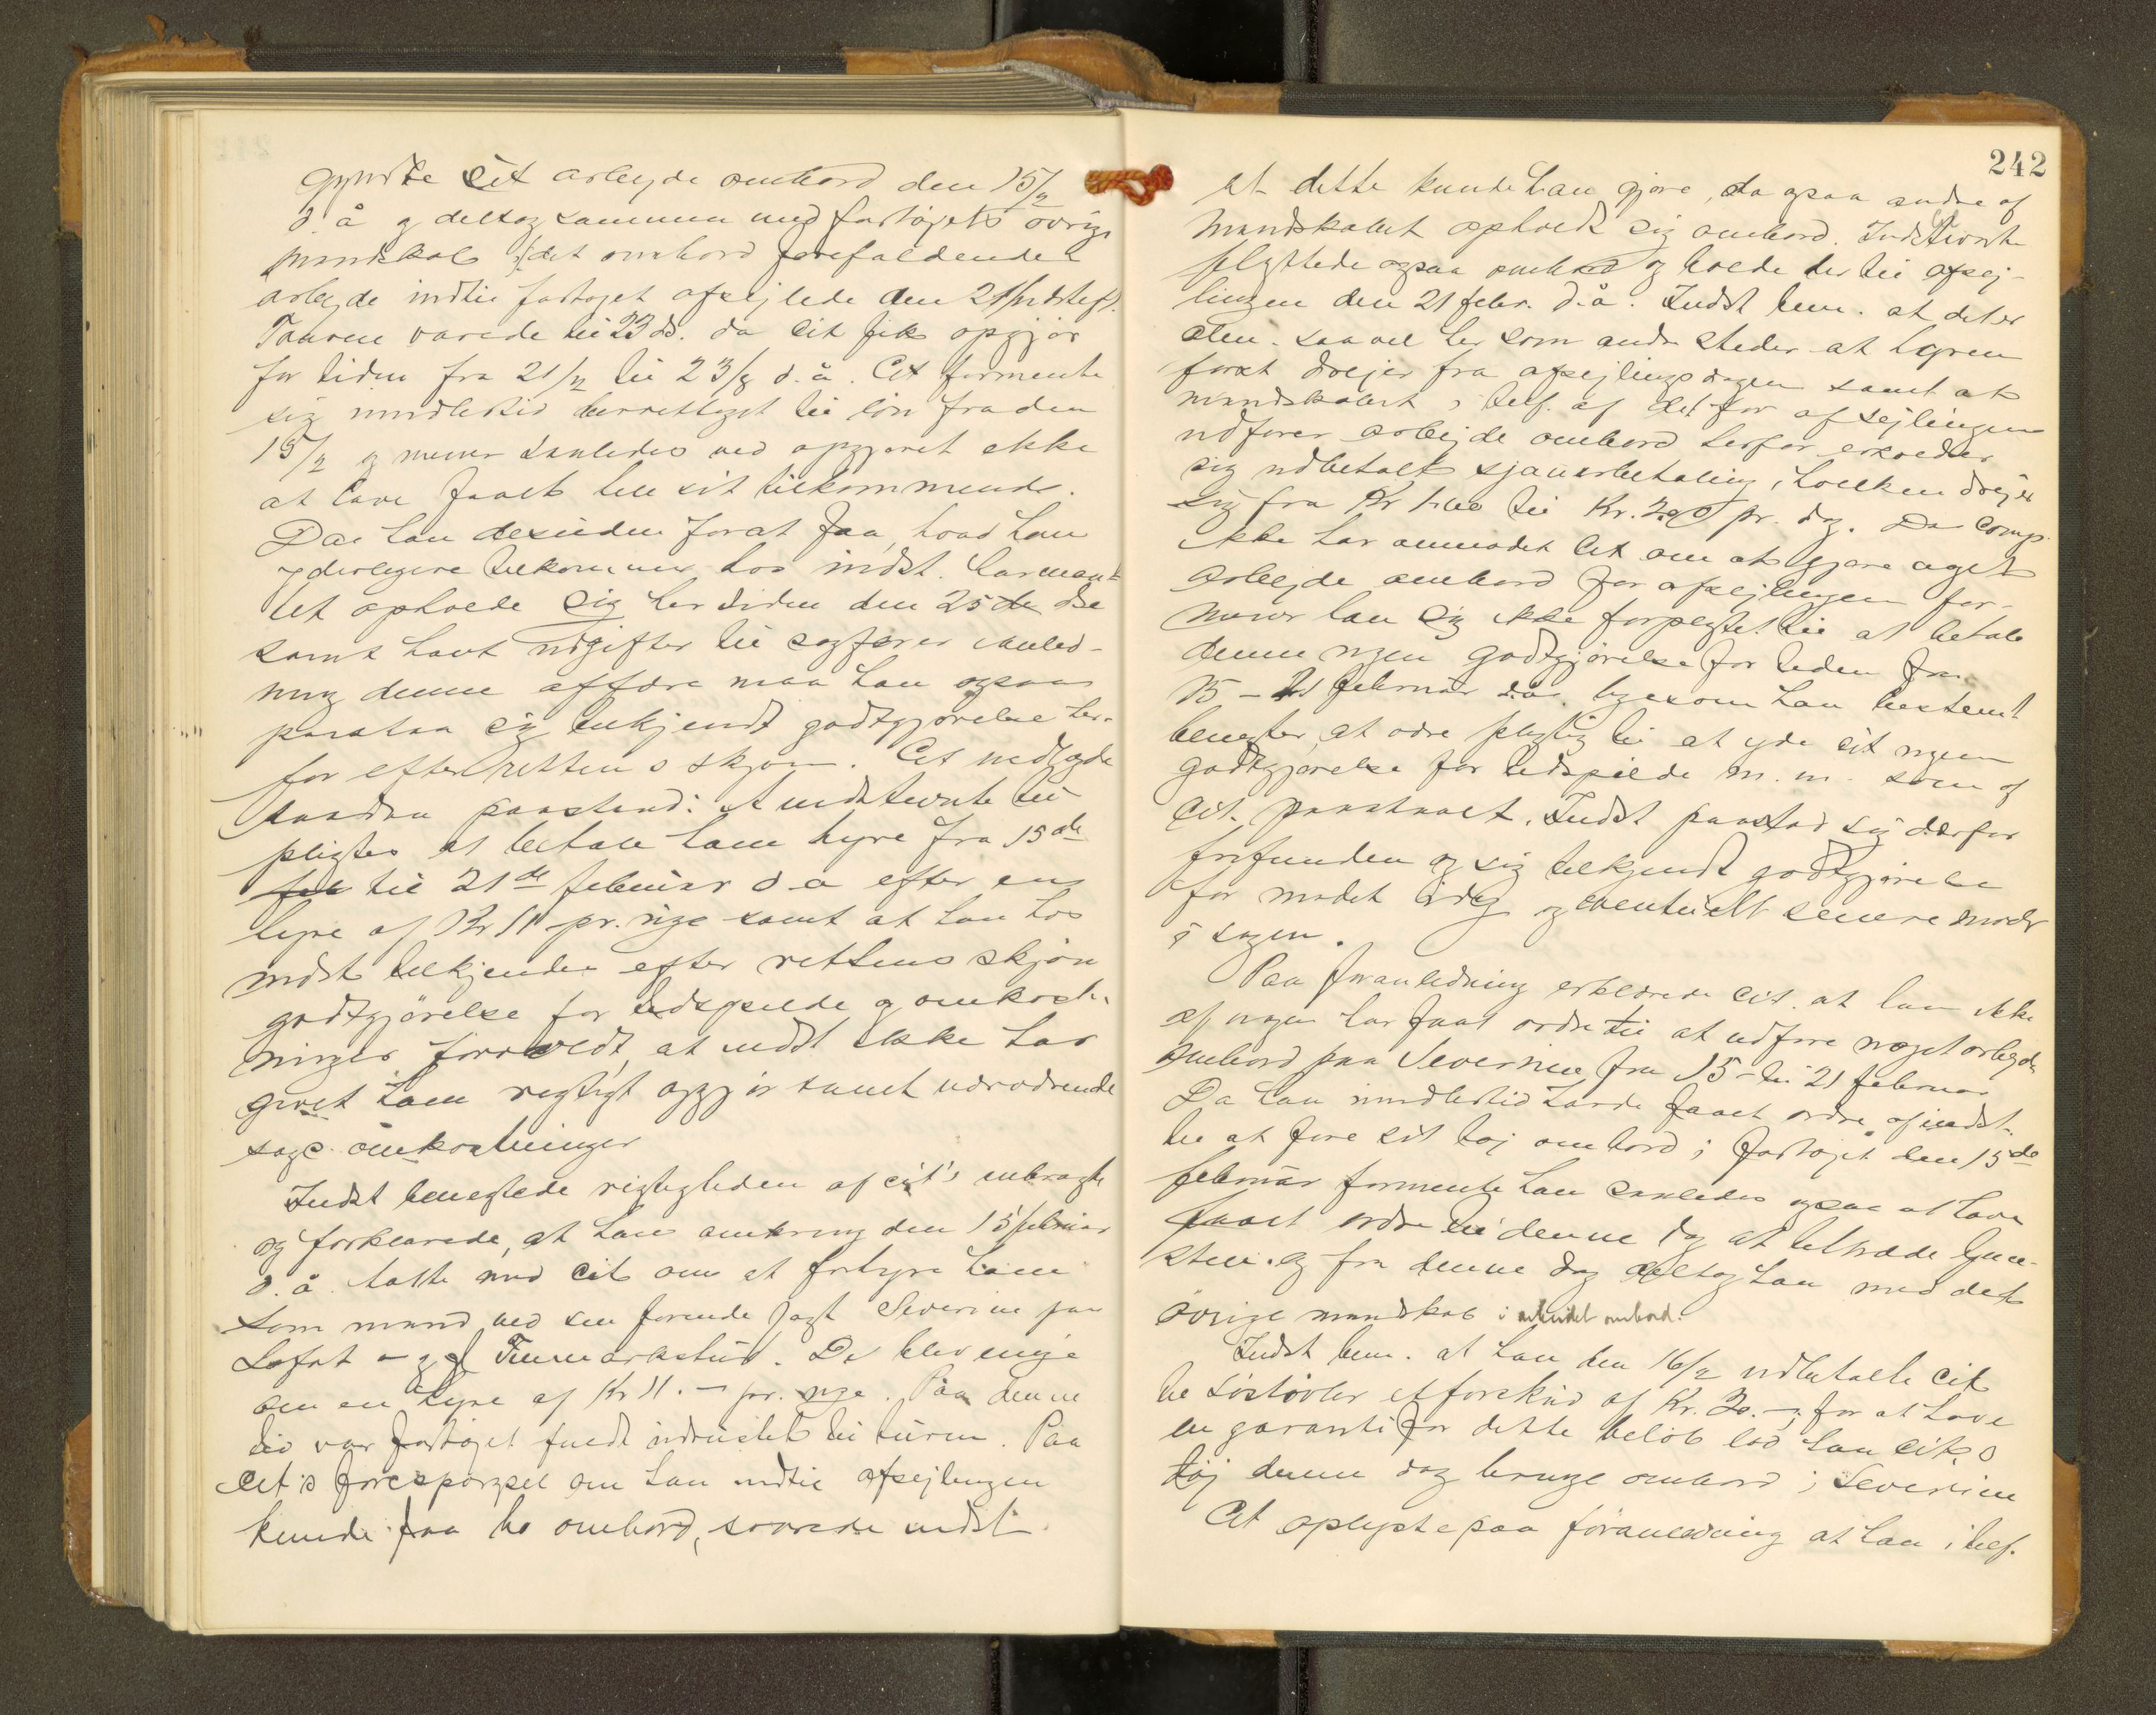 gyndte sit arbeyde ombord den 15/2
d. å og deltog sammen med fartøjets øvrige
mandskab i det ombord forefaldende
arbeyde indtil fartøjet afsejlede den 21/2
Touren varede til 23 ds. da cit fik opgjör
for tiden fra 21/2 til 23/8 d. å. Cit formente
sig imidlertid berettiget til lön fra den
15/2 og mener saaledes ved opgjøret ikke
at have faaet hele sit tilkommende.
Da han desuden forat faa, hvad han
yderligere tilkommer hos indst. har maat-
tet opholde sig her siden den 25de ds
samt havt udgifter til sagfører i anled-
ning denne affære maa han ogsaa
paastaa sig tilkjendt godtgjørelse her-
for efter rettens skjøn. Cit nedlagde
saadan paastand: At indstevnte til-
pligtes at betale ham hyre fra 15de
til 21de februar d. a efter en
hyre af Kr 11 pr. uge samt at han hos
indst tilkjendes efter rettens skjøn
godtgjörelse for tidsspilde og omkost-
ninger forvoldt, at indst ikke har
givet ham rigtigt opgjør samt nærværende
sags omkostninger
Indst benegtede rigtigheden af cit's anbragte
og forklarede, at han omkring den 15 februar
d. å. talte med cit om at forhyre ham
som mand ved sin førende jagt Severine paa
Lofot - og Finmarkstur. De blev enige
om en hyre af Kr 11. - pr. uge. Paa denne
tid var fartøjet fuldt udrustet til turen. Paa
cit's forespørgsel om han indtil afsejlingen
kunde faa bo ombord, svarede indst
242
at dette kunde han gjøre, da ogsaa andre af
mandskabet opholdt sig ombord. Indstevnte
flyttede ogsaa ombord og boede der til afsej-
lingen den 21 febr. d. å. Indst bem. at det er
alm. saavel her som andre steder at hyren
først drejer fra afsejlingsdagen samt at
mandskabet i tilf. af det før afsejlingen
udfører arbejde ombord herfor erholder
sig udbetalt sjauerbetaling, hvilken drejer
sig fra Kr til Kr. 2.00 pr. dag. Da comp.
ikke har anmodet Cit om at gjøre noget
arbejde ombord før afsejlingen for-
mener han sig ikke forpligtet til at betale
denne nogen godtgjørelse for tiden fra
15 - 21 februar d.å. ligesom han bestemt
benegter, at være pligtig til at yde cit nogen
godtgjørelse for tidspilde m. m. som af
cit. paastaaet. Indst paastod sig derfor
frifunden og sig tilkjendt godtgjørelse
for mødet idag og eventuelt senere møder
i sagen.
Paa foranledning erklærede cit. at han ikke
af nogen har faaet ordre til at udføre noget arbejde
ombord paa Severine fra 15 - til 21 februar
Da han imidlertid havde faaet ordre af indst.
til at føre sit tøj ombord i fartøjet den 15de
februar formente han saaledes ogsaa at have
faaet ordre til denne dag at tiltræde tjene-
sten. og fra denne dag deltog han med det
øvrige mandskab i arbeidet ombord.
Indst bem. at han den 16/2 udbetalte cit
til sjøstøvler et forskud af Kr. 20. -; for at have
en garanti for dette beløb lod han cit's
tøj denne dag bringe ombord i Severine
Cit oplyste paa foranledning at han i tilf.